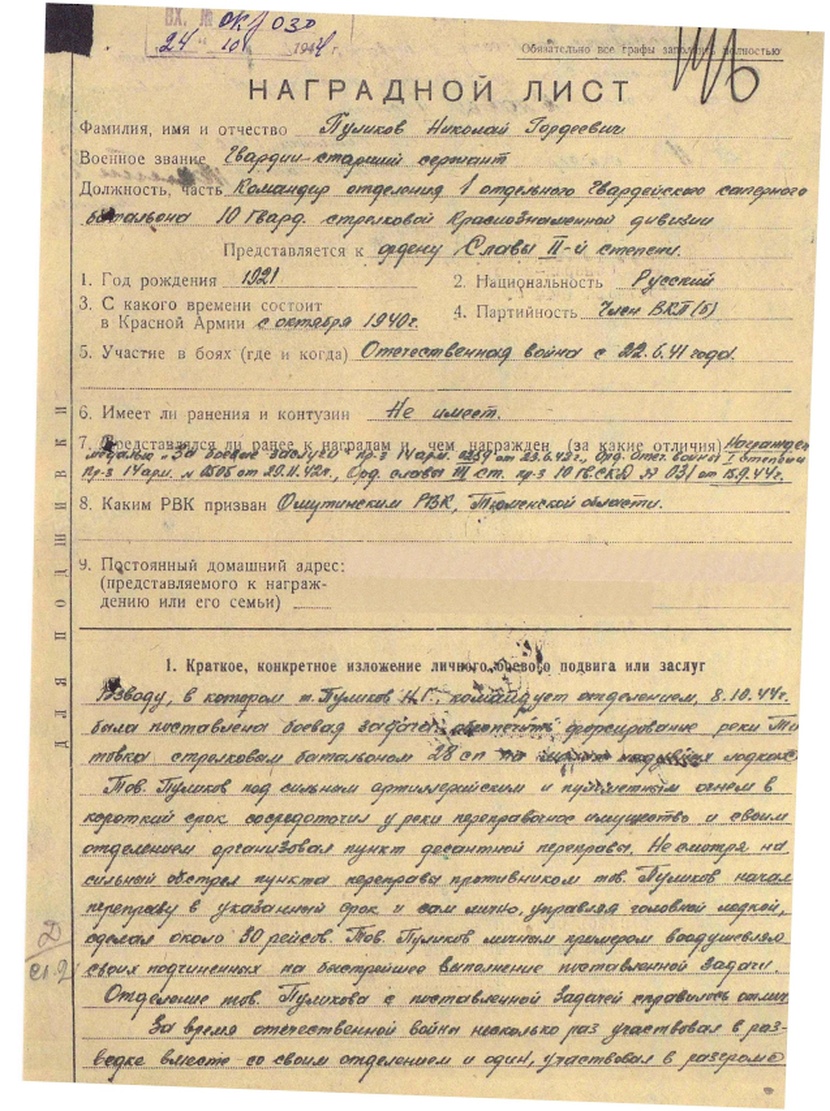 ВХ. №
24 " 10 1944 г.
Обязательно все графы заполнять полностью
НАГРАДНОЙ ЛИСТ
Фамилия, имя и отчество Пуликов Николай Гордеевич
Военное звание Гвардии старший сержант
Должность, часть Командир отделения 1 отдельного Гвардейского саперного
батальона 10 Гвард. стрелковой Краснознаменной дивизии
Представляется к ордену Славы II-й степени.
1. Год рождения 1921
2. Национальность Русский
3. С какого времени состоит
в Красной Армии с октября 1940г.
4. Партийность Член ВКП(б)
5. Участие в боях (где и когда) Отечественная война с 22.6.41 года.
6. Имеет ли ранения и контузии Не имеет.
7. Представлялся ли ранее к наградам и чем награжден (за какие отличия) Награжден
медалью „За боевые заслуги" пр-з 14 арм. от 23.6.42г., Орд. Отеч. войны I степени
пр-з 14 арм. № 0505 от 29.11.42г., Орд. славы III ст. пр-з 10 гв.скд № 031 от 15.9.44г.
8. Каким РВК призван Омутинским РВК, Тюменской области.
9. Постоянный домашний адрес:
(представляемого к награж-
дению или его семьи)
ДЛЯ ПОДШИВКИ
1. Краткое, конкретное изложение личного боевого подвига или заслуг
Взводу, в котором т. Пуликов Н.Г., командует отделением, 8.10.44г.
была поставлена боевая задача обеспечить форсирование реки Ти
товка стрелковым батальоном 28 сп на лодках
Тов. Пуликов под сильным артиллерийским и пулеметным огнем в
короткий срок сосредоточил у реки переправочное имущество и своим
отделением организовал пункт десантной переправы. Не смотря на
сильный обстрел пункта переправы противником тов. Пуликов начал
переправу в указанный срок и сам лично, управляя головной лодкой,
сделал около 30 рейсов. Тов. Пуликов личным примером воодушевлял
своих подчиненных на быстрейшее выполнение поставленной задачи.
Отделение тов. Пуликова с поставленной задачей справилось отлич
За время отечественной войны несколько раз участвовал в раз-
ведке вместе со своим отделением и один, участвовал в разгроме